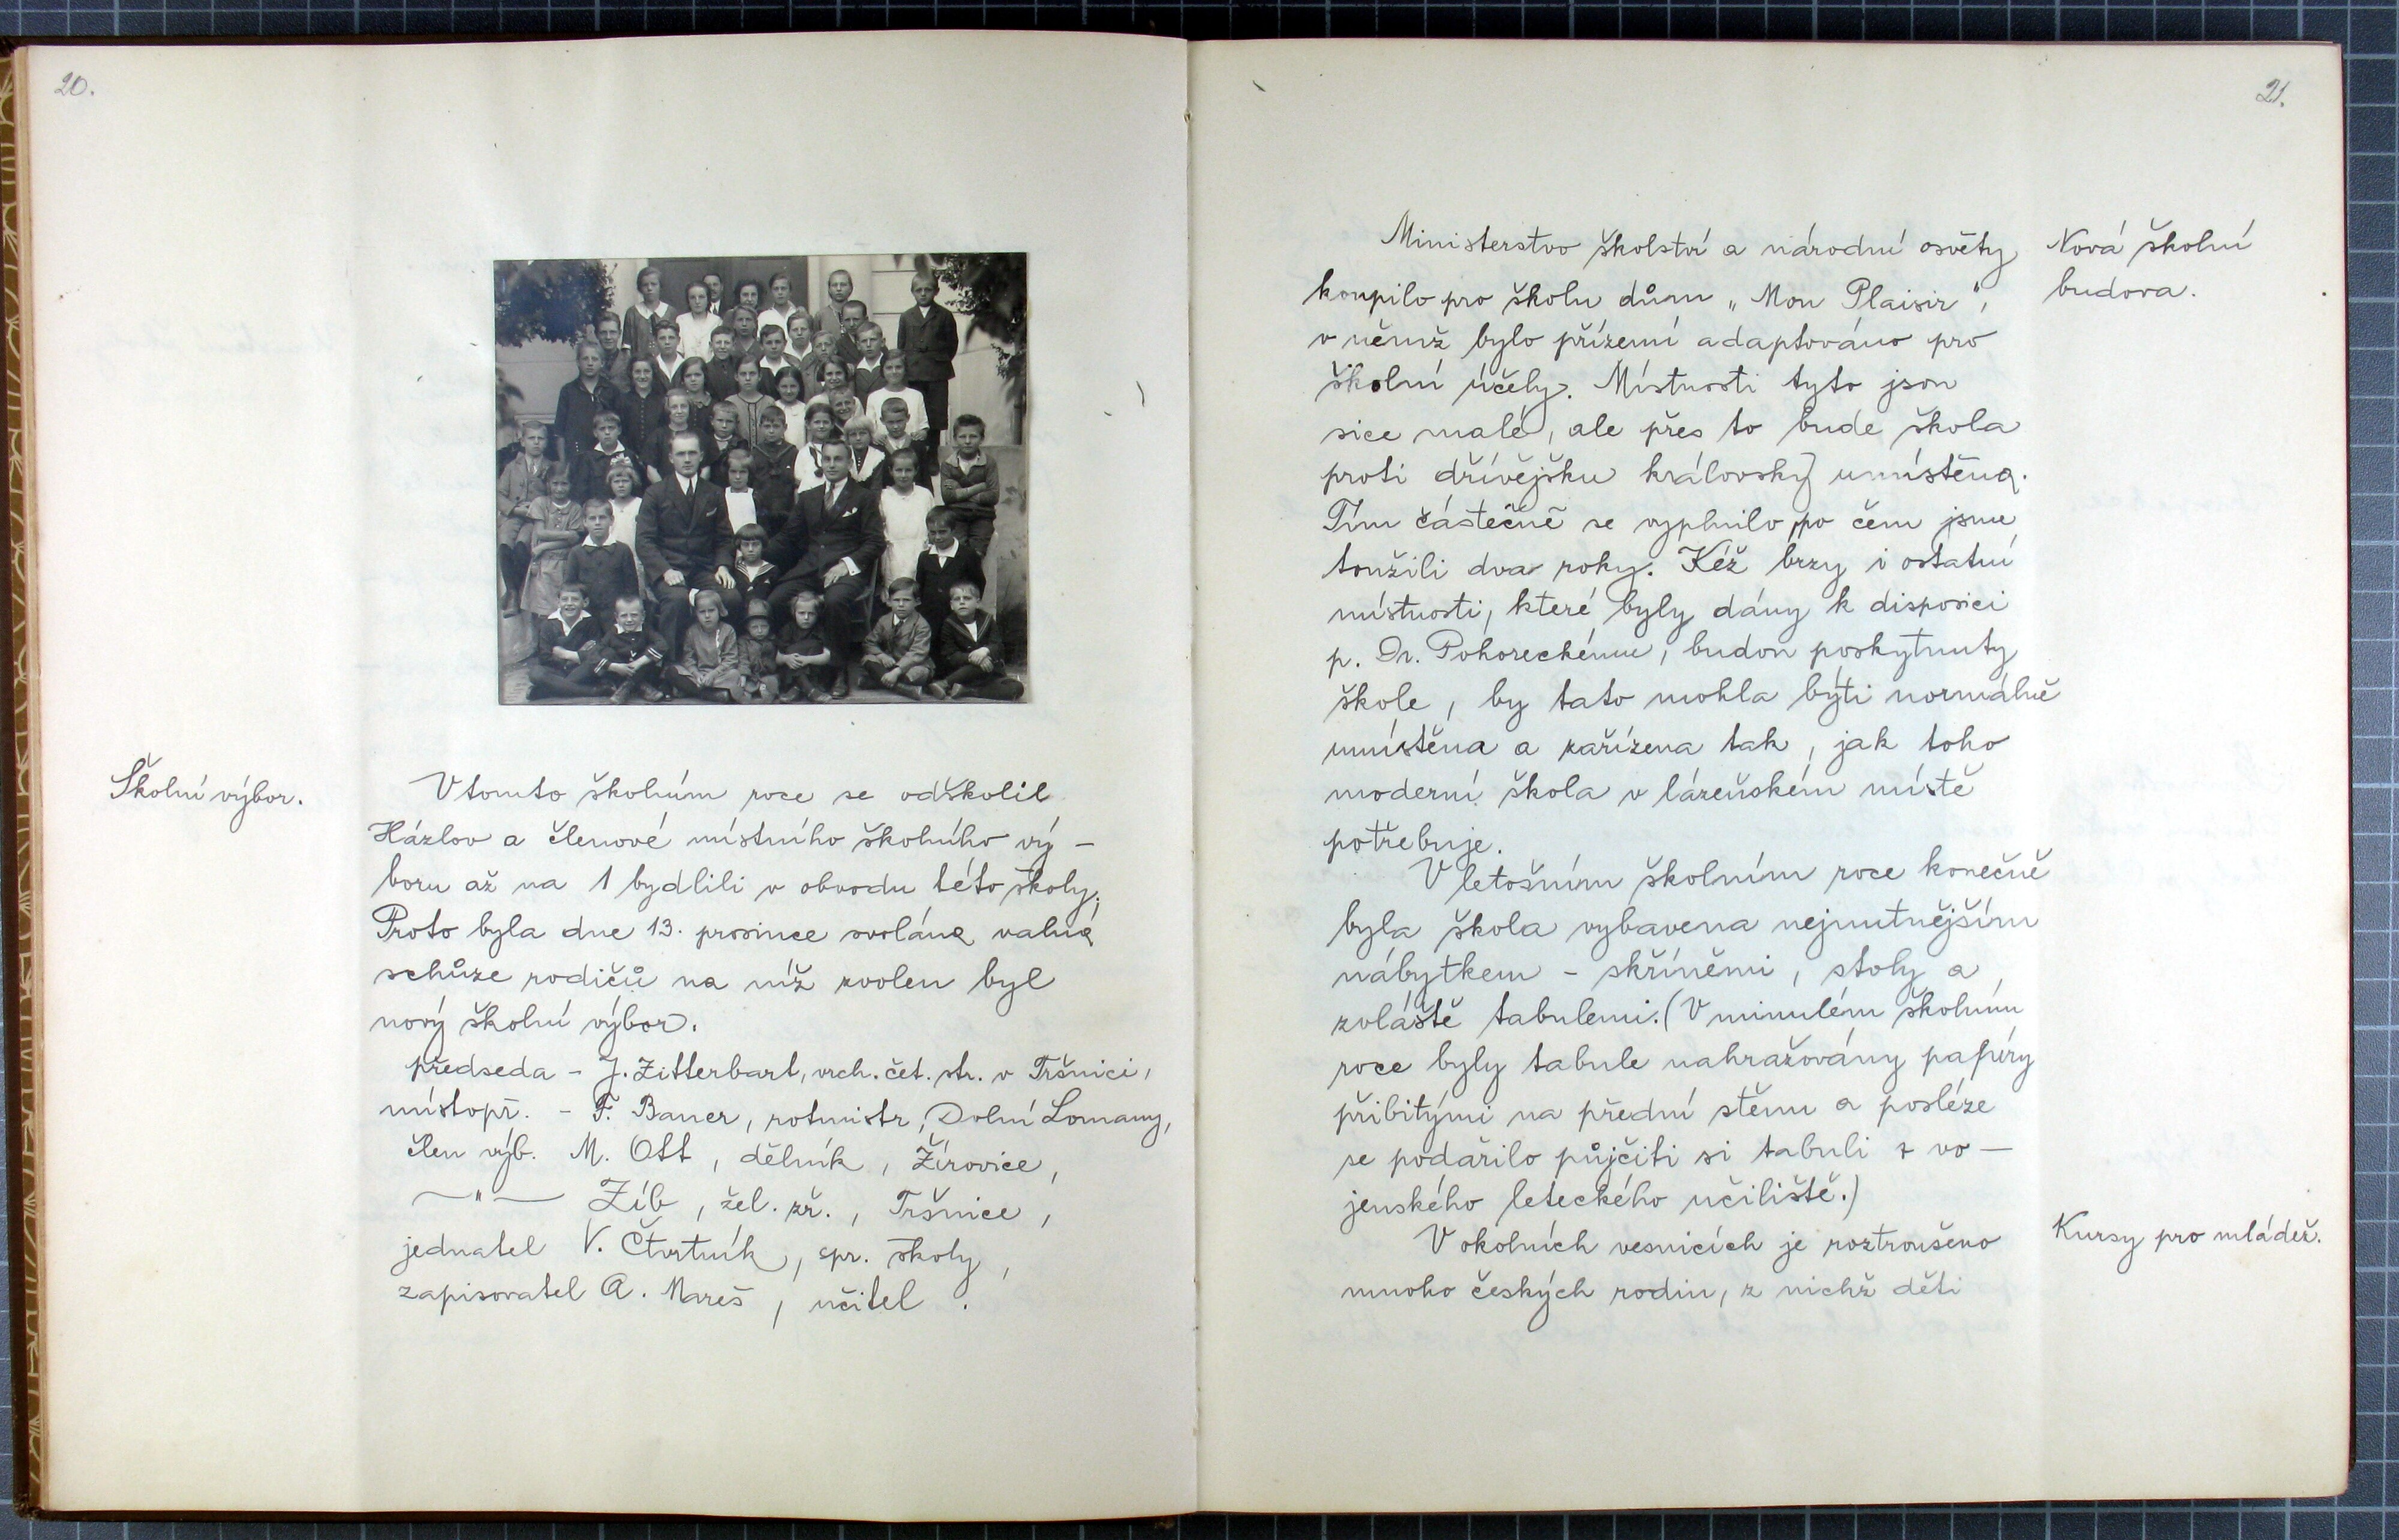 20.
Školní výbor.
V tomto školním roce se odškolil
Házlov a členové místního školního vý-
boru až na 1 bydlili v obvodu této školy.
Proto byla dne 13. prosince svolána valná
schůze rodičů na níž zvolen byl
nový školní výbor.
předseda - J. Zitterbart, vrch. čet. str. v Tršnici,
místopř. - F. Bauer, rotmistr, Dolní Lomany,
člen výb. M. Ott, dělník, Žírovice,
—"— Zíb, žel. zř., Tršnice,
jednatel V. Čtvrtník, spr. školy,
zapisovatel A. Mareš, učitel.
21.
Nová školní
budova.
Ministerstvo školství a národní osvěty
koupilo pro školu dům „Mon Plaisir",
v němž bylo přízemí adaptováno pro
školní účely. Místnosti tyto jsou
sice malé, ale přes to bude škola
proti dřívějšku královsky umístěna.
Tím částečně se vyplnilo, po čem jsme
toužili dva roky. Kéž brzy i ostatní
místnosti, které byly dány k disposici
p. Dr. Pohoreckému, budou poskytnuty
škole, by tato mohla býti normálně
umístěna a zařízena tak, jak toho
moderní škola v lázeňském místě
potřebuje.
V letošním školním roce konečně
byla škola vybavena nejnutnějším
nábytkem - skříněmi, stoly a
zvláště tabulemi. (V minulém školním
roce byly tabule nahražovány papíry
přibitými na přední stěnu a posléze
se podařilo půjčiti si tabuli z vo-
jenského leteckého učiliště.)
Kursy pro mládež.
V okolních vesnicích je roztroušeno
mnoho českých rodin, z nichž děti